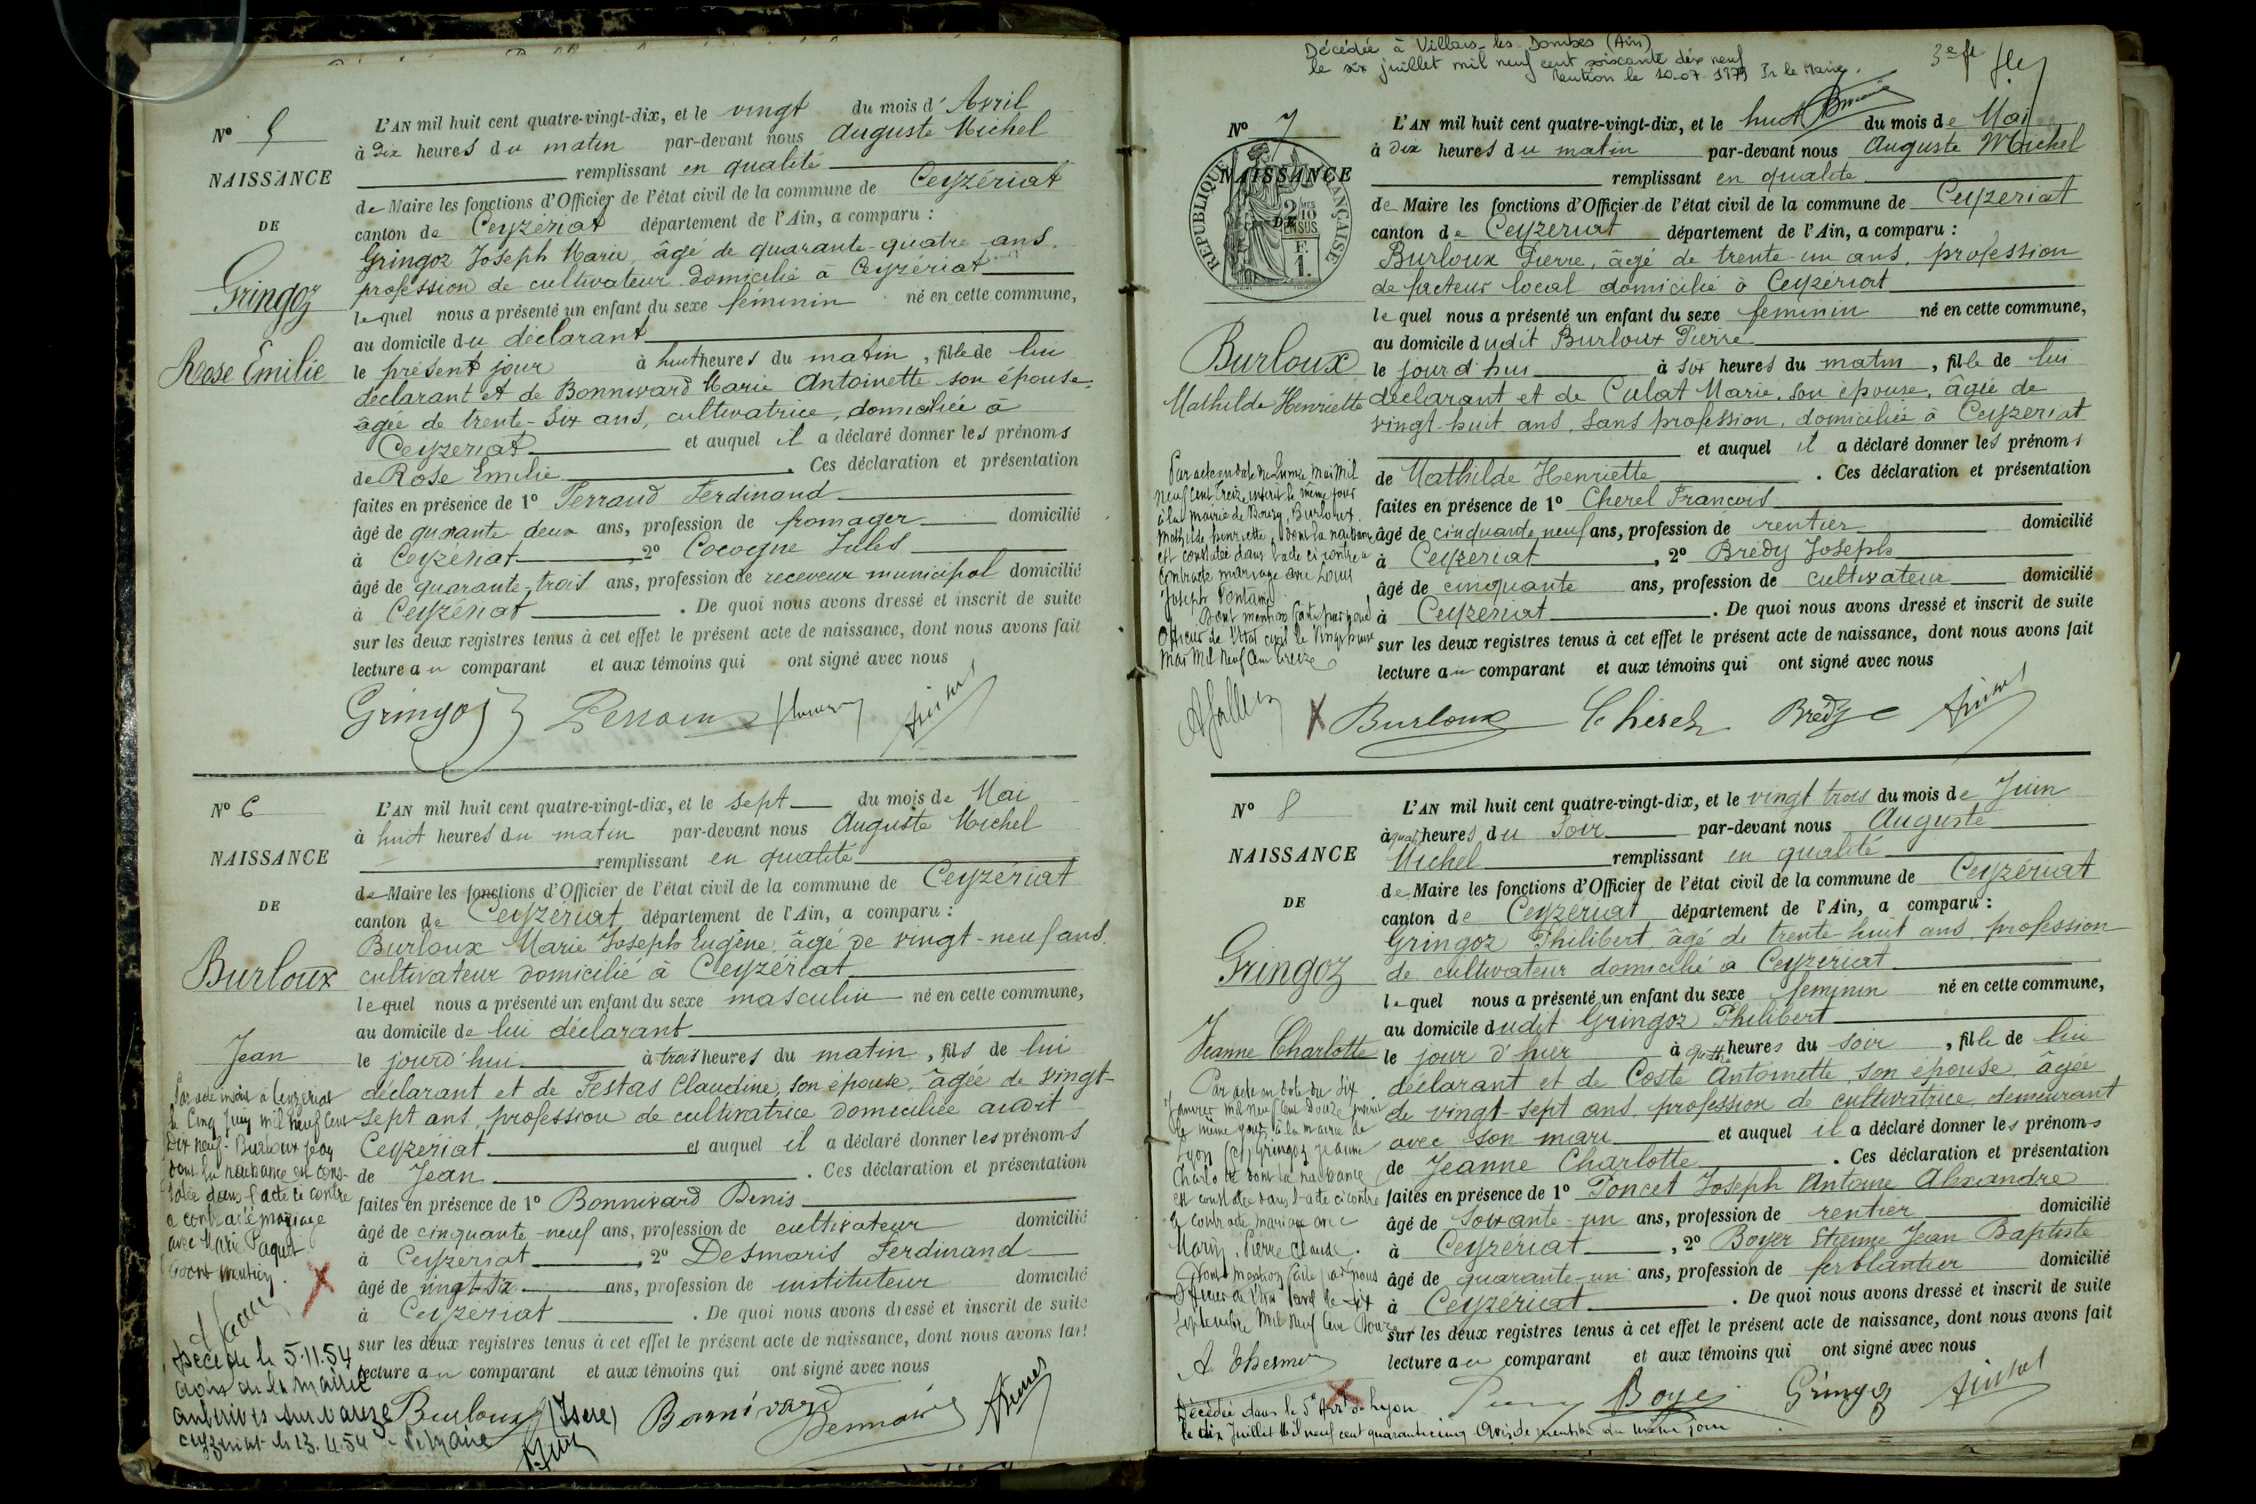 N° 5
NAISSANCE
DE
Gringoz
Rose Emilie
L'AN mil huit cent quatre-vingt-dix, et le vingt du mois d'Avril
à Dix heures du matin par-devant nous Auguste Michel
remplissant en qualité
de Maire les fonctions d'Officier de l'état civil de la commune de Ceyzériat
canton de Ceyzériat département de l'Ain, a comparu :
Gringoz Joseph Marie, âgé de quarante-quatre ans,
profession de cultivateur domicilié à Ceyzériat
lequel nous a présenté un enfant du sexe féminin né en cette commune,
au domicile du déclarant
le présent jour à huit heures du matin, fille de lui
déclarant et de Bonnivard Marie Antoinette son épouse
âgée de trente-six ans, cultivatrice, domiciliée à
Ceyzeriat et auquel il a déclaré donner les prénoms
de Rose Emilie. Ces déclaration et présentation
faites en présence de 1° Perraud Ferdinand
âgé de quarante deux ans, profession de fromager domicilié
à Ceyzériat, 2° Cocogne Jules
âgé de quarante-trois ans, profession de receveur municipal domicilié
à Ceyzériat. De quoi nous avons dressé et inscrit de suite
sur les deux registres tenus à cet effet le présent acte de naissance, dont nous avons fait
lecture au comparant et aux témoins qui ont signé avec nous
Gringoz
N° 6
NAISSANCE
DE
Burloux
Jean
L'AN mil huit cent quatre-vingt-dix, et le sept du mois de Mai
à huit heures du matin par-devant nous Auguste Michel
remplissant en qualité
de Maire les fonctions d'Officier de l'état civil de la commune de Ceyzériat
canton de Ceyzériat département de l'Ain, a comparu :
Burloux Marie Joseph Eugène, âgé de vingt-neuf ans,
cultivateur domicilié à Ceyzériat
lequel nous a présenté un enfant du sexe masculin né en cette commune,
au domicile de lui déclarant
le jourd'hui à trois heures du matin, fils de lui
déclarant et de Festas Claudine, son épouse, âgée de vingt-
sept ans, profession de cultivatrice domiciliée audit
Ceyzériat et auquel il a déclaré donner les prénoms
de Jean. Ces déclaration et présentation
faites en présence de 1° Bonnivard Denis
âgé de cinquante-neuf ans, profession de cultivateur domicilié
à Ceyzeriat, 2° Desmaris Ferdinand
âgé de vingt-six ans, profession de instituteur domicilié
à Ceyzeriat. De quoi nous avons dressé et inscrit de suite
sur les deux registres tenus à cet effet le présent acte de naissance, dont nous avons fait
lecture au comparant et aux témoins qui ont signé avec nous
Par acte inscrit à Ceyzériat
le Cinq Juin mil neuf cent
Dix neuf - Burloux Jean
dont la naissance est cons-
tatée dans l'acte ci contre
a contracté mariage
avec Marie Paquet
Dont mention.
Décédé le 5.11.54
avis de la mairie
Auberives sur Vareze (Isere)
le Maire
Burloux Bonnivard
Décédée à Villars-les-Dombes (Ain)
le six juillet mil neuf cent soixante dix neuf
Mention le 10.07.1979 Pr le Maire.
N° 7
NAISSANCE
DE
REPUBLIQUE FRANÇAISE
Burloux
Mathilde Henriette
L'AN mil huit cent quatre-vingt-dix, et le huit du mois de Mai
à dix heures du matin par-devant nous Auguste Michel
remplissant en qualité
de Maire les fonctions d'Officier de l'état civil de la commune de Ceyzeriat
canton de Ceyzeriat département de l'Ain, a comparu :
Burloux Pierre, âgé de trente-un ans, profession
de facteur local domicilié à Ceyzériat
lequel nous a présenté un enfant du sexe feminin né en cette commune,
au domicile dudit Burloux Pierre
le jourd'hui à six heures du matin, fille de lui
déclarant et de Culat Marie, son épouse, âgée de
vingt-huit ans, sans profession, domiciliée à Ceyzeriat
et auquel il a déclaré donner les prénoms
de Mathilde Henriette. Ces déclaration et présentation
faites en présence de 1° Cherel François
âgé de cinquante neuf ans, profession de rentier domicilié
à Ceyzeriat, 2° Brédy Joseph
âgé de cinquante ans, profession de cultivateur domicilié
à Ceyzeriat. De quoi nous avons dressé et inscrit de suite
sur les deux registres tenus à cet effet le présent acte de naissance, dont nous avons fait
lecture au comparant et aux témoins qui ont signé avec nous
neuf cent treize inscrit le même jour
à la mairie de Bourg, Burloux
Mathilde Henriette, dont la naissance
est constatée dans l'acte ci contre a
contracté mariage avec Louis
Joseph
Dont mention faite par nous
Officier de l'état civil le
Mai Mil neuf cent treize
Burloux Cherel Bredy
N° 8
NAISSANCE
DE
Gringoz
Jeanne Charlotte
L'AN mil huit cent quatre-vingt-dix, et le vingt trois du mois de Juin
à quatre heures du soir par-devant nous Auguste
Michel remplissant en qualité
de Maire les fonctions d'Officier de l'état civil de la commune de Ceyzériat
canton de Ceyzériat département de l'Ain, a comparu :
Gringoz Philibert, âgé de trente-huit ans, profession
de cultivateur domicilié à Ceyzériat
lequel nous a présenté un enfant du sexe feminin né en cette commune,
au domicile dudit Gringoz Philibert
le jour d'hier à quatre heures du soir, fille de lui
déclarant et de Coste Antoinette, son épouse, âgée
de vingt-sept ans, profession de cultivatrice, demeurant
avec son mari et auquel il a déclaré donner les prénoms
de Jeanne Charlotte. Ces déclaration et présentation
faites en présence de 1° Poncet Joseph Antoine Alexandre
âgé de soixante-un ans, profession de rentier domicilié
à Ceyzériat, 2° Boyer Etienne Jean Baptiste
âgé de quarante-un ans, profession de ferblantier domicilié
à Ceyzériat. De quoi nous avons dressé et inscrit de suite
sur les deux registres tenus à cet effet le présent acte de naissance, dont nous avons fait
lecture au comparant et aux témoins qui ont signé avec nous
Par acte en date du six
Janvier mil neuf cent douze inscrit
le même jour à la mairie de
Lyon Gringoz Jeanne
Charlotte dont la naissance
est constatée dans l'acte ci contre
a contracté mariage avec
Marin, Pierre Claude.
Dont mention faite par nous
Officier de l'état civil le six
Septembre Mil neuf cent Douze
Boyer Gringoz
Décédée dans le 5e Arrt de Lyon
le dix Juillet Mil neuf cent quarante cinq Avis de mention du même jour